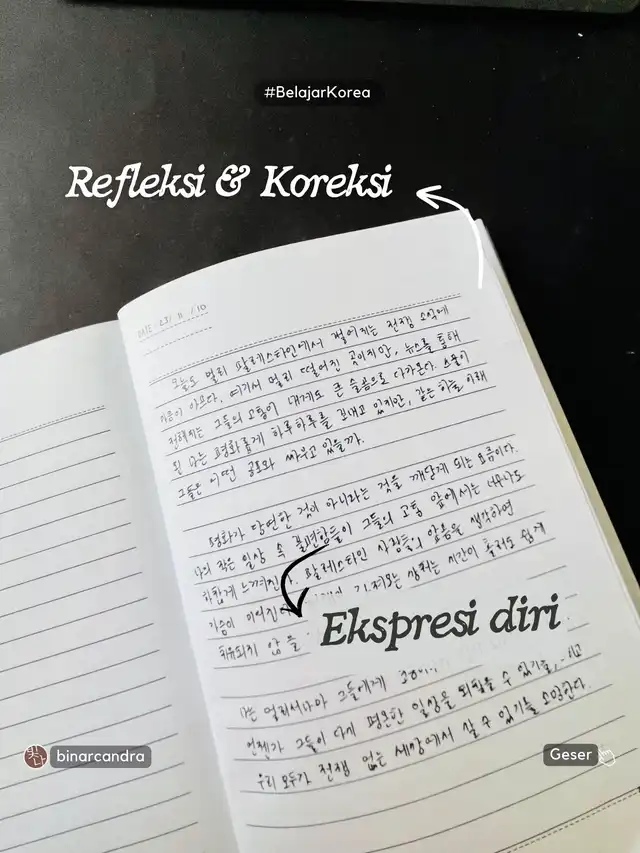 #BelajarKorea
Refleksi & Koreksi
DATE 23/ 11 / 10
오늘도 멀리 팔레스타인에서 벌어지는 전쟁 소식에
마음이 아프다. 여기서 멀리 떨어진 곳이지만, 뉴스를 통해
전해지는 그들의 고통이 내게도 큰 슬픔으로 다가온다.
된 나는 평화롭게 하루하루를 보내고 있지만, 같은 하늘 아래
그들은 어떤 공포와 싸우고 있을까.
평화가 당연한 것이 아니라는 것을 깨닫게 되는 요즘이다.
나의 작은 일상 속 불편함들이 그들의 고통 앞에서는 너무나도
하찮게 느껴진다. 팔레스타인 사람들의 아픔을 생각하면
가슴이 시간이 흘러도 쉽게
치유되지 않을
Ekspresi diri
나는 멀리서나마 그들에게
언젠가 그들이 다시 평온한 일상을 되찾을 수 있기를,
우리 모두가 전쟁 없는 세상에서 살 수 있기를 소망한다.
빛나
binarcandra
Geser